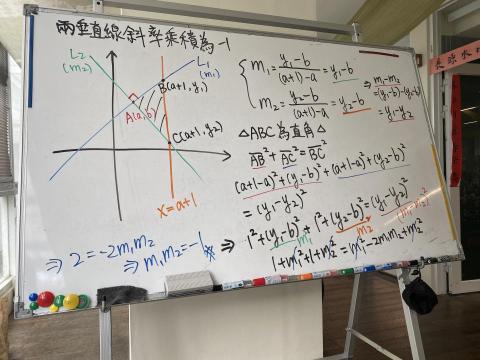 兩垂直線斜率乘積為-1
L₂
(m₂)
L₁
(m₁)
B(a+1, y₁)
A(a,b)
C(a+1, y₂)
x=a+1
m₁ = (y₁-b)/((a+1)-a) = y₁-b
m₂ = (y₂-b)/((a+1)-a) = y₂-b
⇒ m₁-m₂
=(y₁-b)-(y₂-b)
= y₁-y₂
△ABC為直角△
AB² + AC² = BC²
(a+1-a)²+(y₁-b)²+(a+1-a)²+(y₂-b)²
=(y₁-y₂)²
⇒ 1²+(y₁-b)²+1²+(y₂-b)²=(y₁-y₂)²
m₁
m₂
(m₁-m₂)²
1+m₁²+1+m₂²=m₁²-2m₁m₂+m₂²
⇒ 2=-2m₁m₂
⇒ m₁m₂=-1